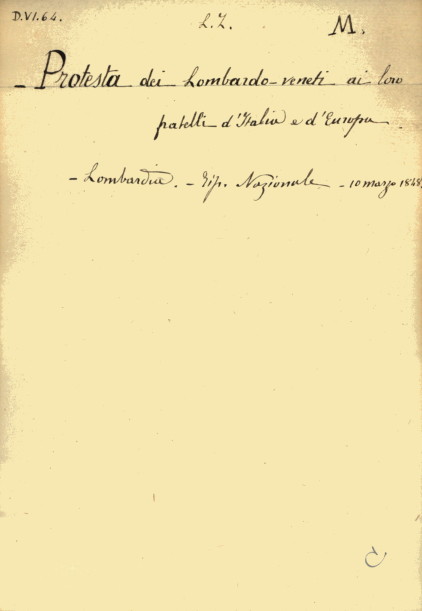 D.VI.64. L.Z. M.
- Protesta dei Lombardo-veneti ai loro
fratelli d'Italia e d'Europa
- Lombardia. - Tip. Nazionale - 10 marzo 1848